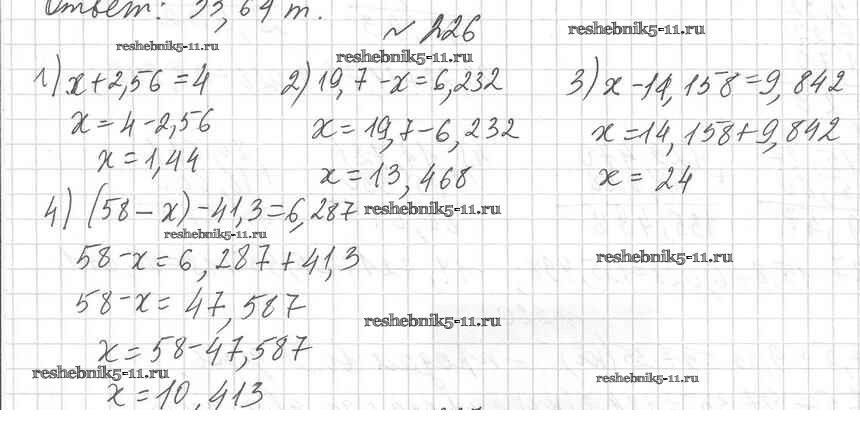 Ответ: 33,64 т.
№ 226
reshebnik5-11.ru
reshebnik5-11.ru
reshebnik5-11.ru
1) x+2,56=4
x=4-2,56
x=1,44
2) 19,7-x=6,232
x=19,7-6,232
x=13,468
3) x-14,158=9,842
x=14,158+9,842
x=24
4) (58-x)-41,3=6,287
reshebnik5-11.ru
reshebnik5-11.ru
58-x=6,287+41,3
reshebnik5-11.ru
58-x=47,587
reshebnik5-11.ru
x=58-47,587
reshebnik5-11.ru
reshebnik5-11.ru
x=10,413